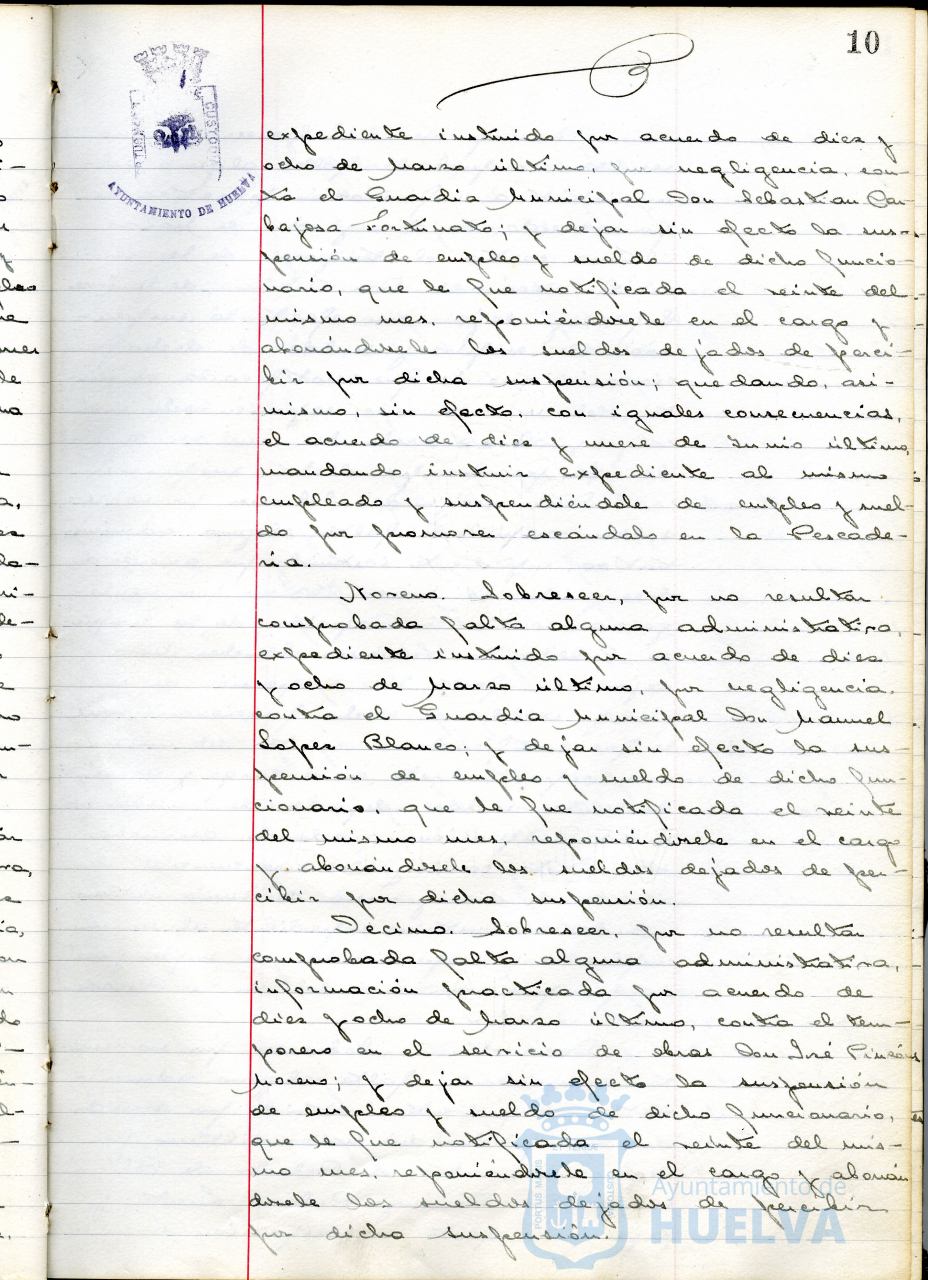 10
AYUNTAMIENTO DE HUELVA
expediente instruido por acuerdo de diez y
ocho de Marzo último, por negligencia, con-
tra el Guardia Municipal Don Sebastian Car-
bajosa Fortunato; y dejar sin efecto la sus-
pensión de empleo y sueldo de dicho funcio-
nario, que le fue notificada el veinte del
mismo mes, reponiéndosele en el cargo y
abonándosele los sueldos dejados de perci-
bir por dicha suspensión; quedando, asi-
mismo, sin efecto, con iguales consecuencias,
el acuerdo de diez y nueve de Junio último,
mandando instruir expediente al mismo
empleado y suspendiéndole de empleo y suel-
do por promover escándalo en la Pescade-
ria.
Noveno. Sobreseer, por no resultar
comprobada falta alguna administrativa,
expediente instruido por acuerdo de diez
y ocho de Marzo último, por negligencia,
contra el Guardia Municipal Don Manuel
Lopez Blanco; y dejar sin efecto la sus-
pensión de empleo y sueldo de dicho fun-
cionario, que le fue notificada el veinte
del mismo mes, reponiéndosele en el cargo
y abonándosele los sueldos dejados de per-
cibir por dicha suspensión.
Decimo. Sobreseer, por no resultar
comprobada falta alguna administrativa,
información practicada por acuerdo de
diez y ocho de Marzo último, contra el tem-
porero en el servicio de obras Don José Pinzón
Moreno; y dejar sin efecto la suspensión
de empleo y sueldo de dicho funcionario,
que le fue notificada el veinte del mis-
mo mes, reponiéndosele en el cargo y abonán
dosele los sueldos dejados de percibir
por dicha suspensión.
Ayuntamiento de
HUELVA